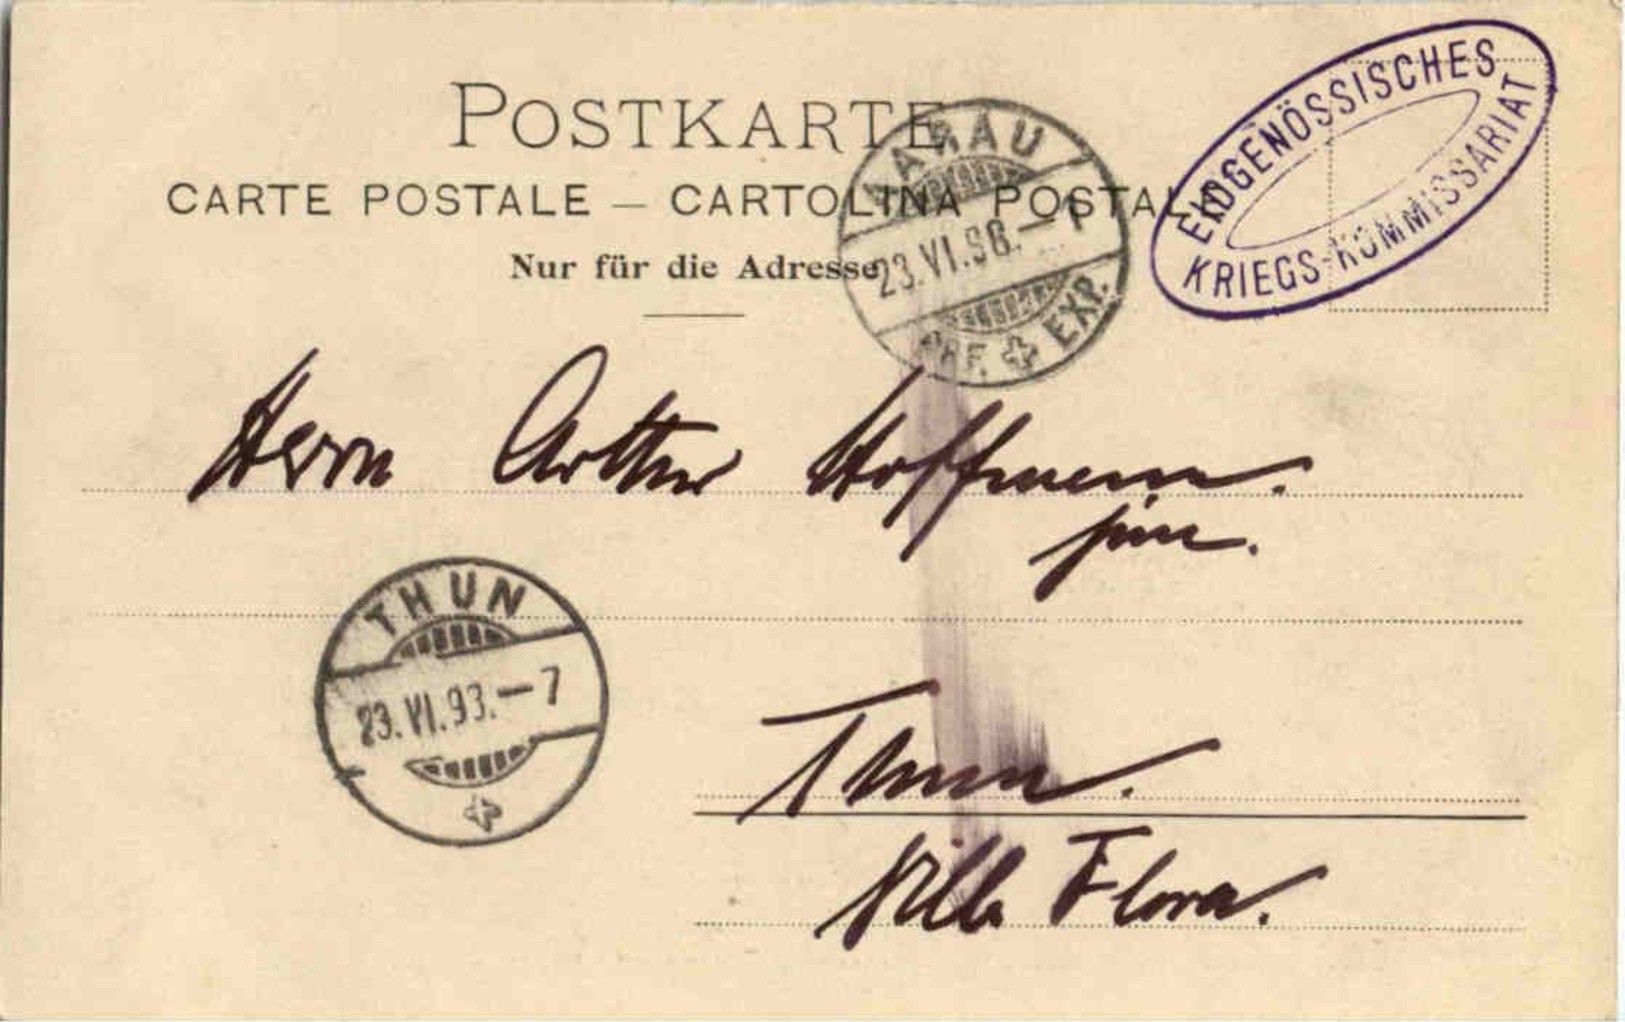 POSTKARTE
CARTE POSTALE — CARTOLINA POSTALE
Nur für die Adresse
AARAU
23.VI.98.—
BRF. EXP.
EIDGENÖSSISCHES
KRIEGS-KOMMISSARIAT
Herrn Arthur Hoffmann.
jun.
THUN
23.VI.93.—7
Thun.
Villa Flora.